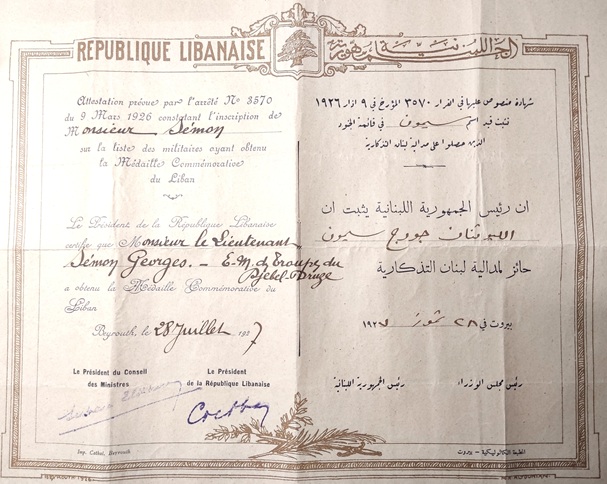 REPUBLIQUE LIBANAISE
الجمهورية اللبنانية
Attestation prévue par l'arrêté Nº 3570
du 9 Mars 1926 constatant l'inscription de
Monsieur Sémon
sur la liste des militaires ayant obtenu
la Médaille Commémorative
du Liban
Le Président de la République Libanaise
certifie que Monsieur le Lieutenant
Sémon Georges. — E-M. d. Troupes du
Djebel-Druze
a obtenu la Médaille Commémorative du
Liban
Beyrouth, le 28 Juillet 1927
Le Président du Conseil
des Ministres
Le Président
de la République Libanaise
Imp. Cathol. Beyrouth
شهادة منصوص عليها في القرار ٣٥٧٠ المؤرخ في ٩ اذار ١٩٢٦
تثبت قيد اسم سيمون في قائمة الجنود
الذين حصلوا على مدالية لبنان التذكارية
ان رئيس الجمهورية اللبنانية يثبت ان
الليوتنان جورج سيمون
حائز لمدالية لبنان التذكارية
بيروت في ٢٨ تموز ١٩٢٧
رئيس مجلس الوزراء
رئيس الجمهورية اللبنانية
المطبعة الكاثوليكية - بيروت